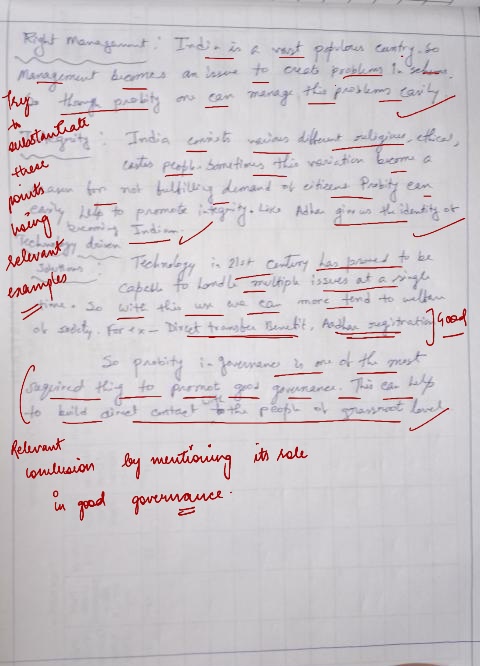 Right Management: India is a vast populous country. So
Management becomes an issue to create problems in
So though probity one can manage this problems easily
Try to substantiate these points using relevant examples
Integrity: India consists various different religious, ethical,
castes people. Sometimes this variation become a
reason for not fulfilling demand of citizens Probity can
easily help to promote integrity. Like Adhar gives us the identity of
becoming Indian.
Technology driven
Solutions: Technology in 21st century has proved to be
capable to handle multiple issues at a single
time. So with this use we can more tend to welfare
of society. For ex - Direct transfer Benefit, Aadhar registration
Good
So probity in governance is one of the most
required thing to promot good governance. This can help
to build direct contact to the people of grassroot level
Relevant
conclusion by mentioning its role
in good governance.